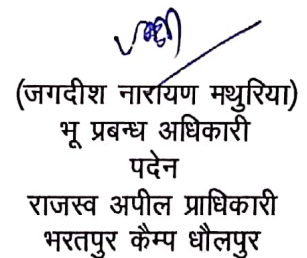 (जगदीश नारायण मथुरिया)
भू प्रबन्ध अधिकारी
पदेन
राजस्व अपील प्राधिकारी
भरतपुर कैम्प धौलपुर